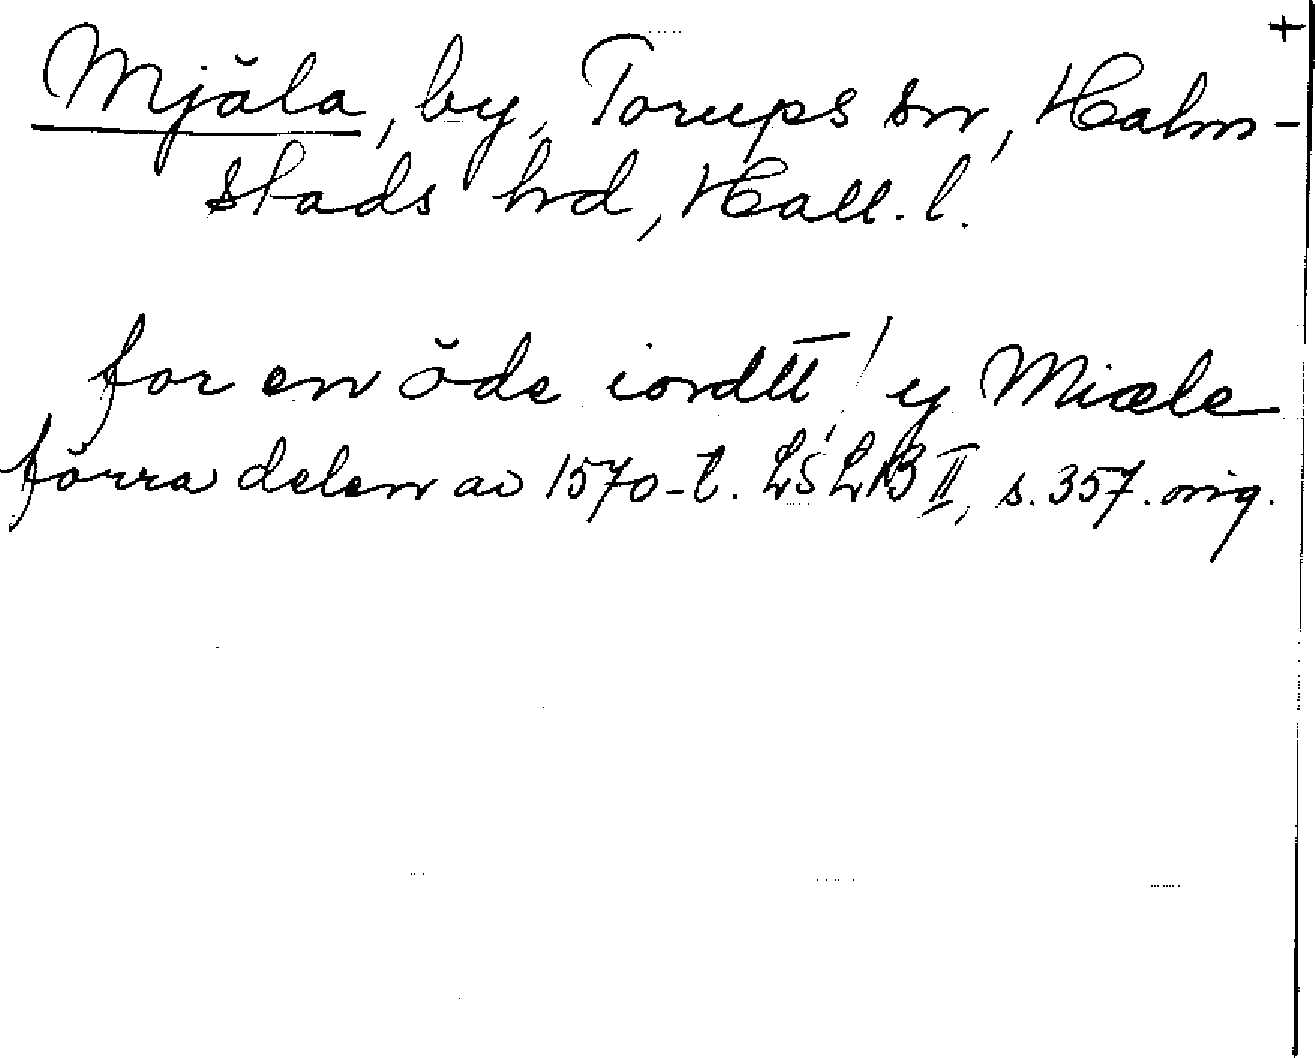 +
Mjäla, by, Torups sn, Halm-
stads hrd, Hall. l.
for en öde iordtt ! y Miæle
förra delen av 1570-t. LSLB II, s. 357. orig.